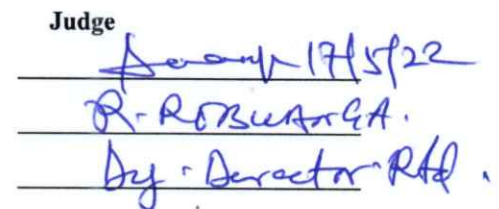 Judge
17/5/22
R. ROBUANGA.
Dy. Director Rtd.